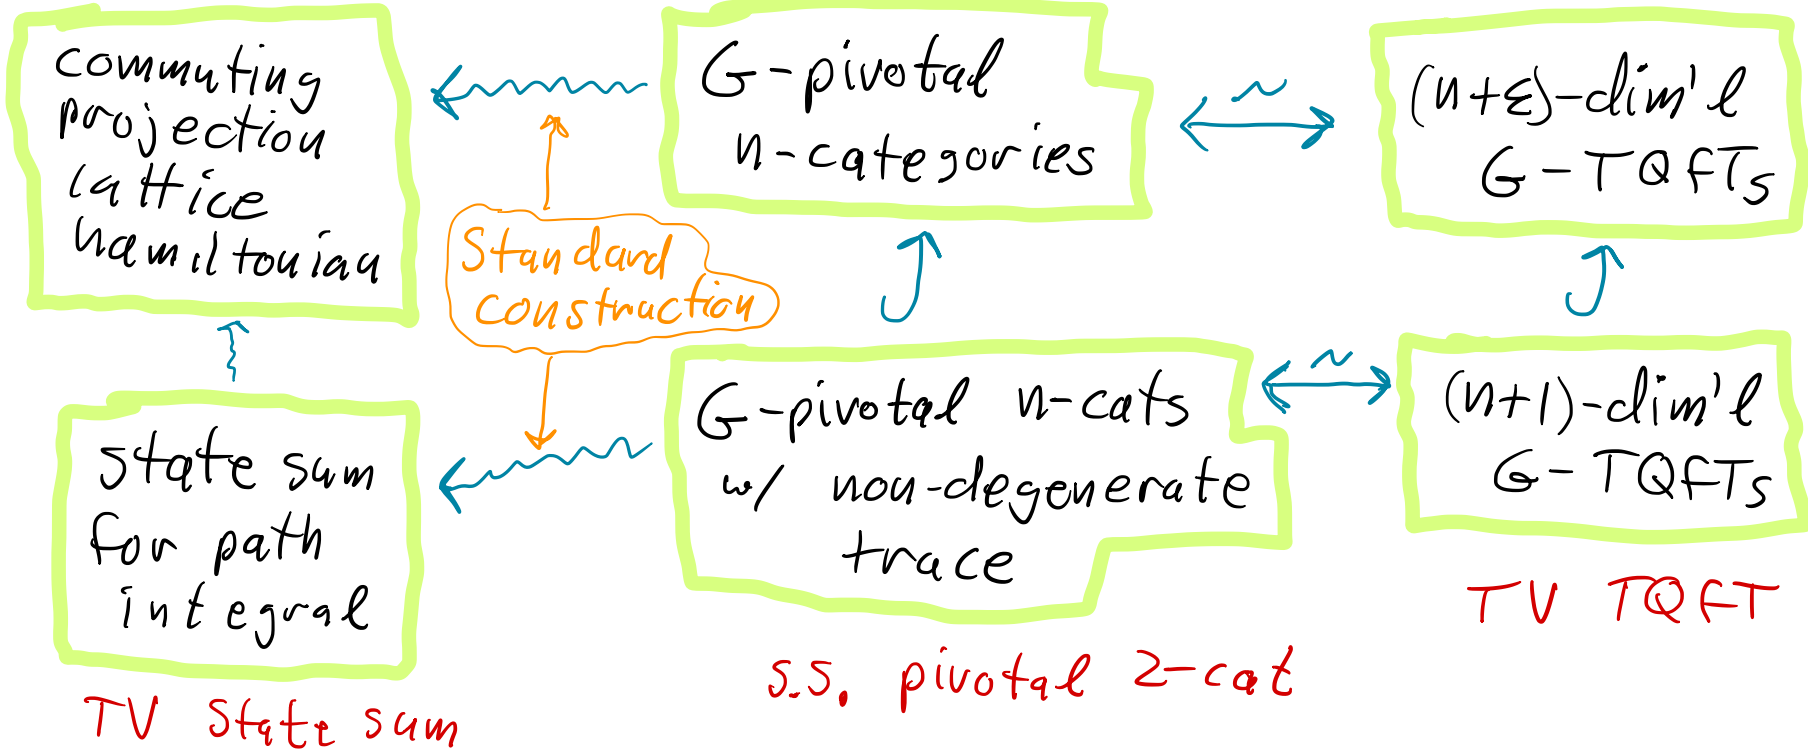 commuting
projection
lattice
hamiltonian
G-pivotal
n-categories
~
(n+ε)-dim'l
G-TQFTs
Standard
construction
state sum
for path
integral
G-pivotal n-cats
w/ non-degenerate
trace
~
(n+1)-dim'l
G-TQFTs
TV state sum
s.s. pivotal 2-cat
TV TQFT